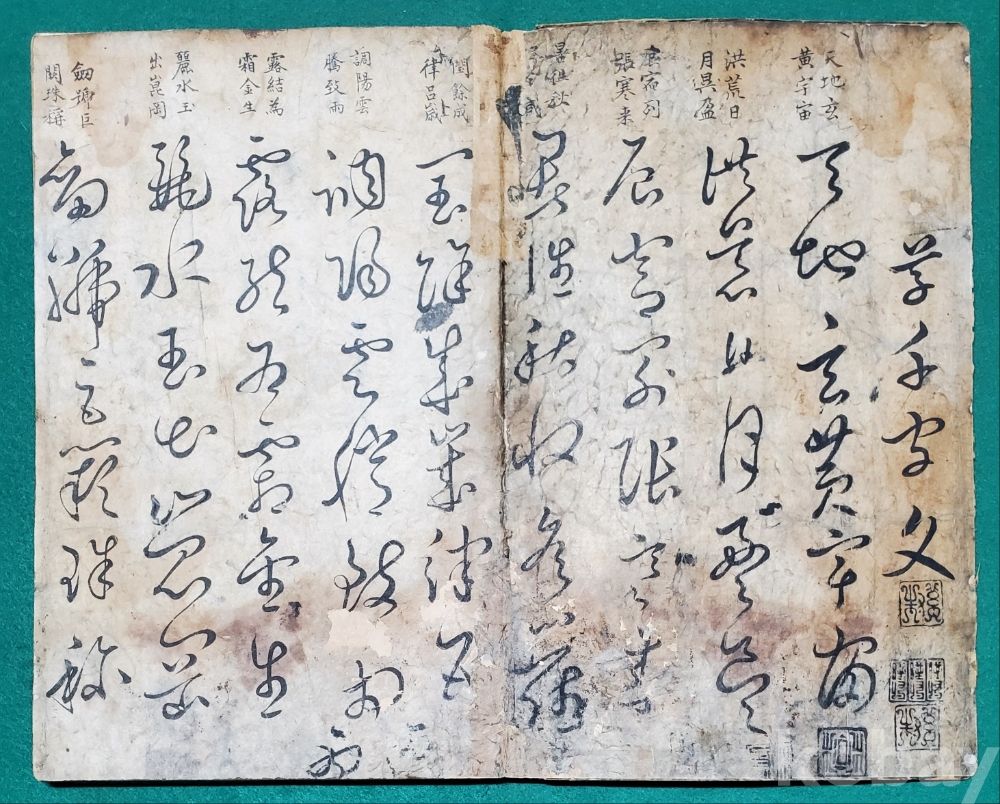 草千字文
天地玄
黄宇宙
天地玄黄宇宙
洪荒日
月盈
洪荒日月盈昃
辰宿列
張寒来
辰宿列張寒来
暑往秋
暑往秋收冬藏
閏餘成
律呂歲
閏餘成歲律呂
調陽雲
騰致雨
調陽雲騰致雨
露結為
霜金生
露結為霜金生
麗水玉
出崑岡
麗水玉出崑岡
劒號巨
闕珠稱
劒號巨闕珠称
kobay